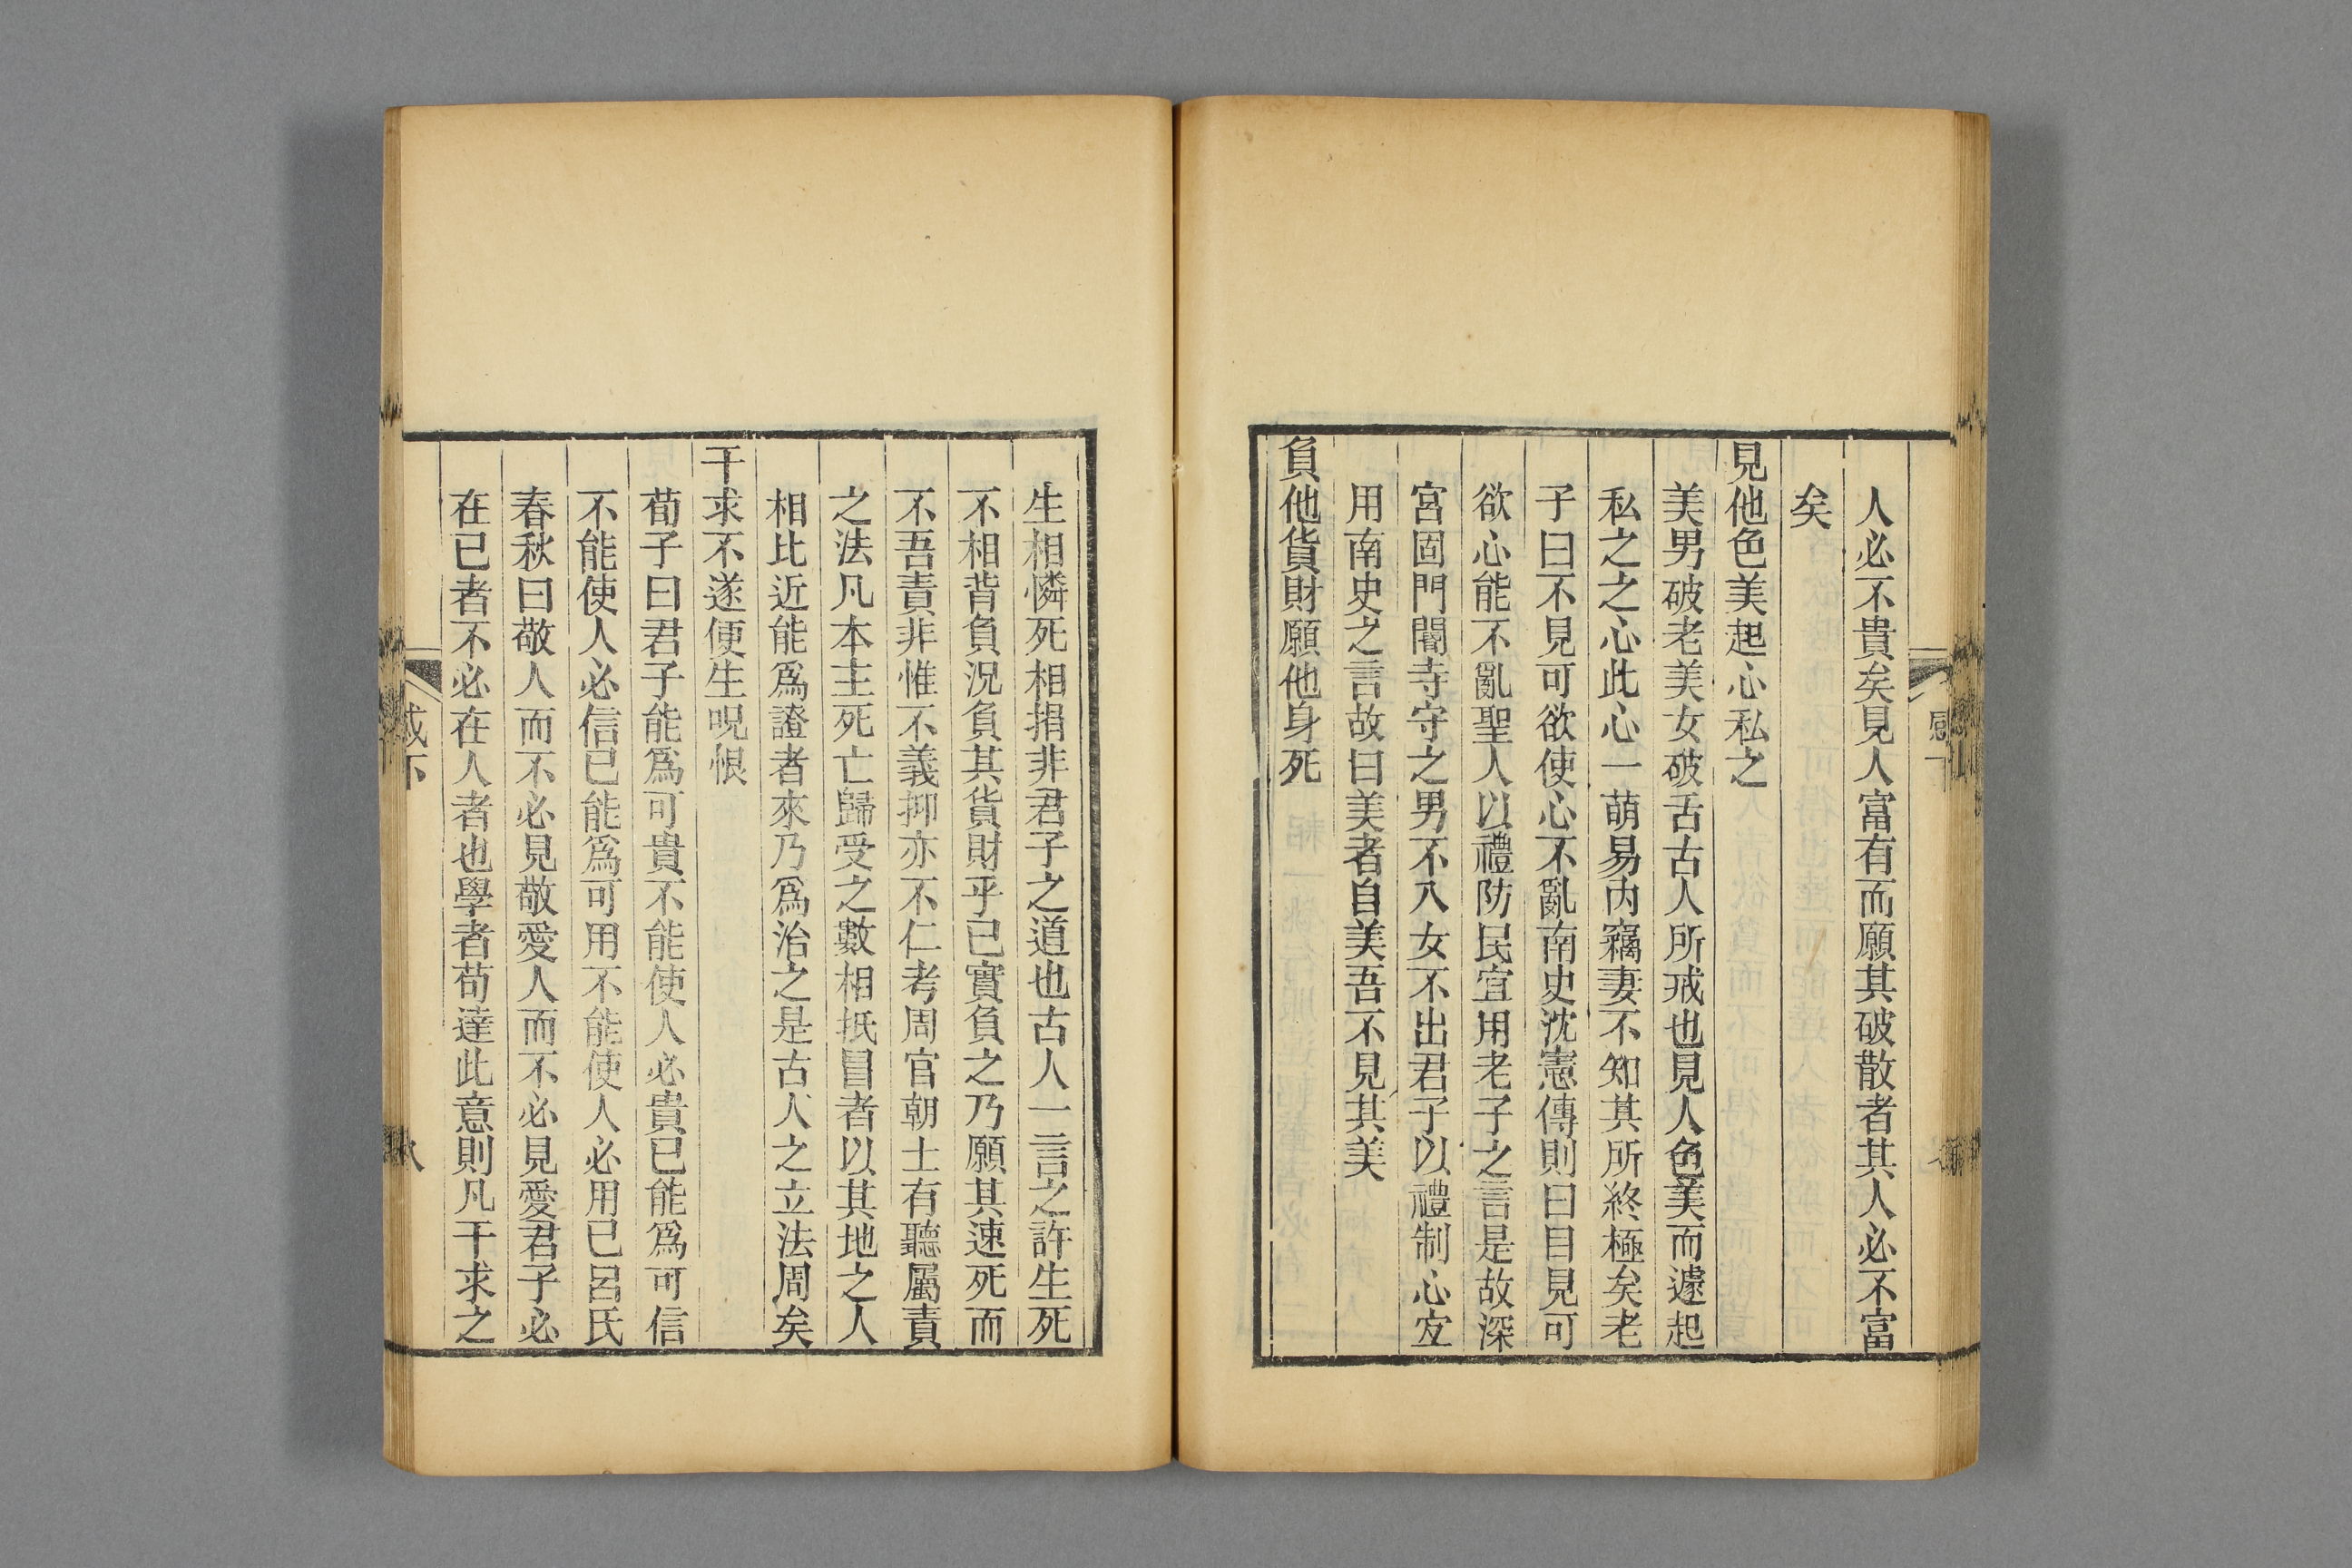 人必不貴矣見人富有而願其破散者其人必不富
矣
見他色美起心私之
美男破老美女破舌古人所戒也見人色美而遽起
私之之心此心一萌易内竊妻不知其所終極矣老
子曰不見可欲使心不亂南史沈憲傳則曰目見可
欲心能不亂聖人以禮防民宜用老子之言是故深
宮固門閽寺守之男不入女不出君子以禮制心宜
用南史之言故曰美者自美吾不見其美
負他貨財願他身死
生相憐死相捐非君子之道也古人一言之許生死
不相背負況負其貨財乎己實負之乃願其速死而
不吾責非惟不義抑亦不仁考周官朝士有聽屬責
之法凡本主死亡歸受之數相抵冒者以其地之人
相比近能爲證者來乃爲治之是古人之立法周矣
干求不遂便生呪恨
荀子曰君子能爲可貴不能使人必貴已能爲可信
不能使人必信已能爲可用不能使人必用已呂氏
春秋曰敬人而不必見敬愛人而不必見愛君子必
在已者不必在人者也學者苟達此意則凡干求之